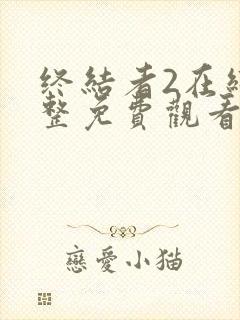 终結者2在
整免費觀看
戀愛小猫